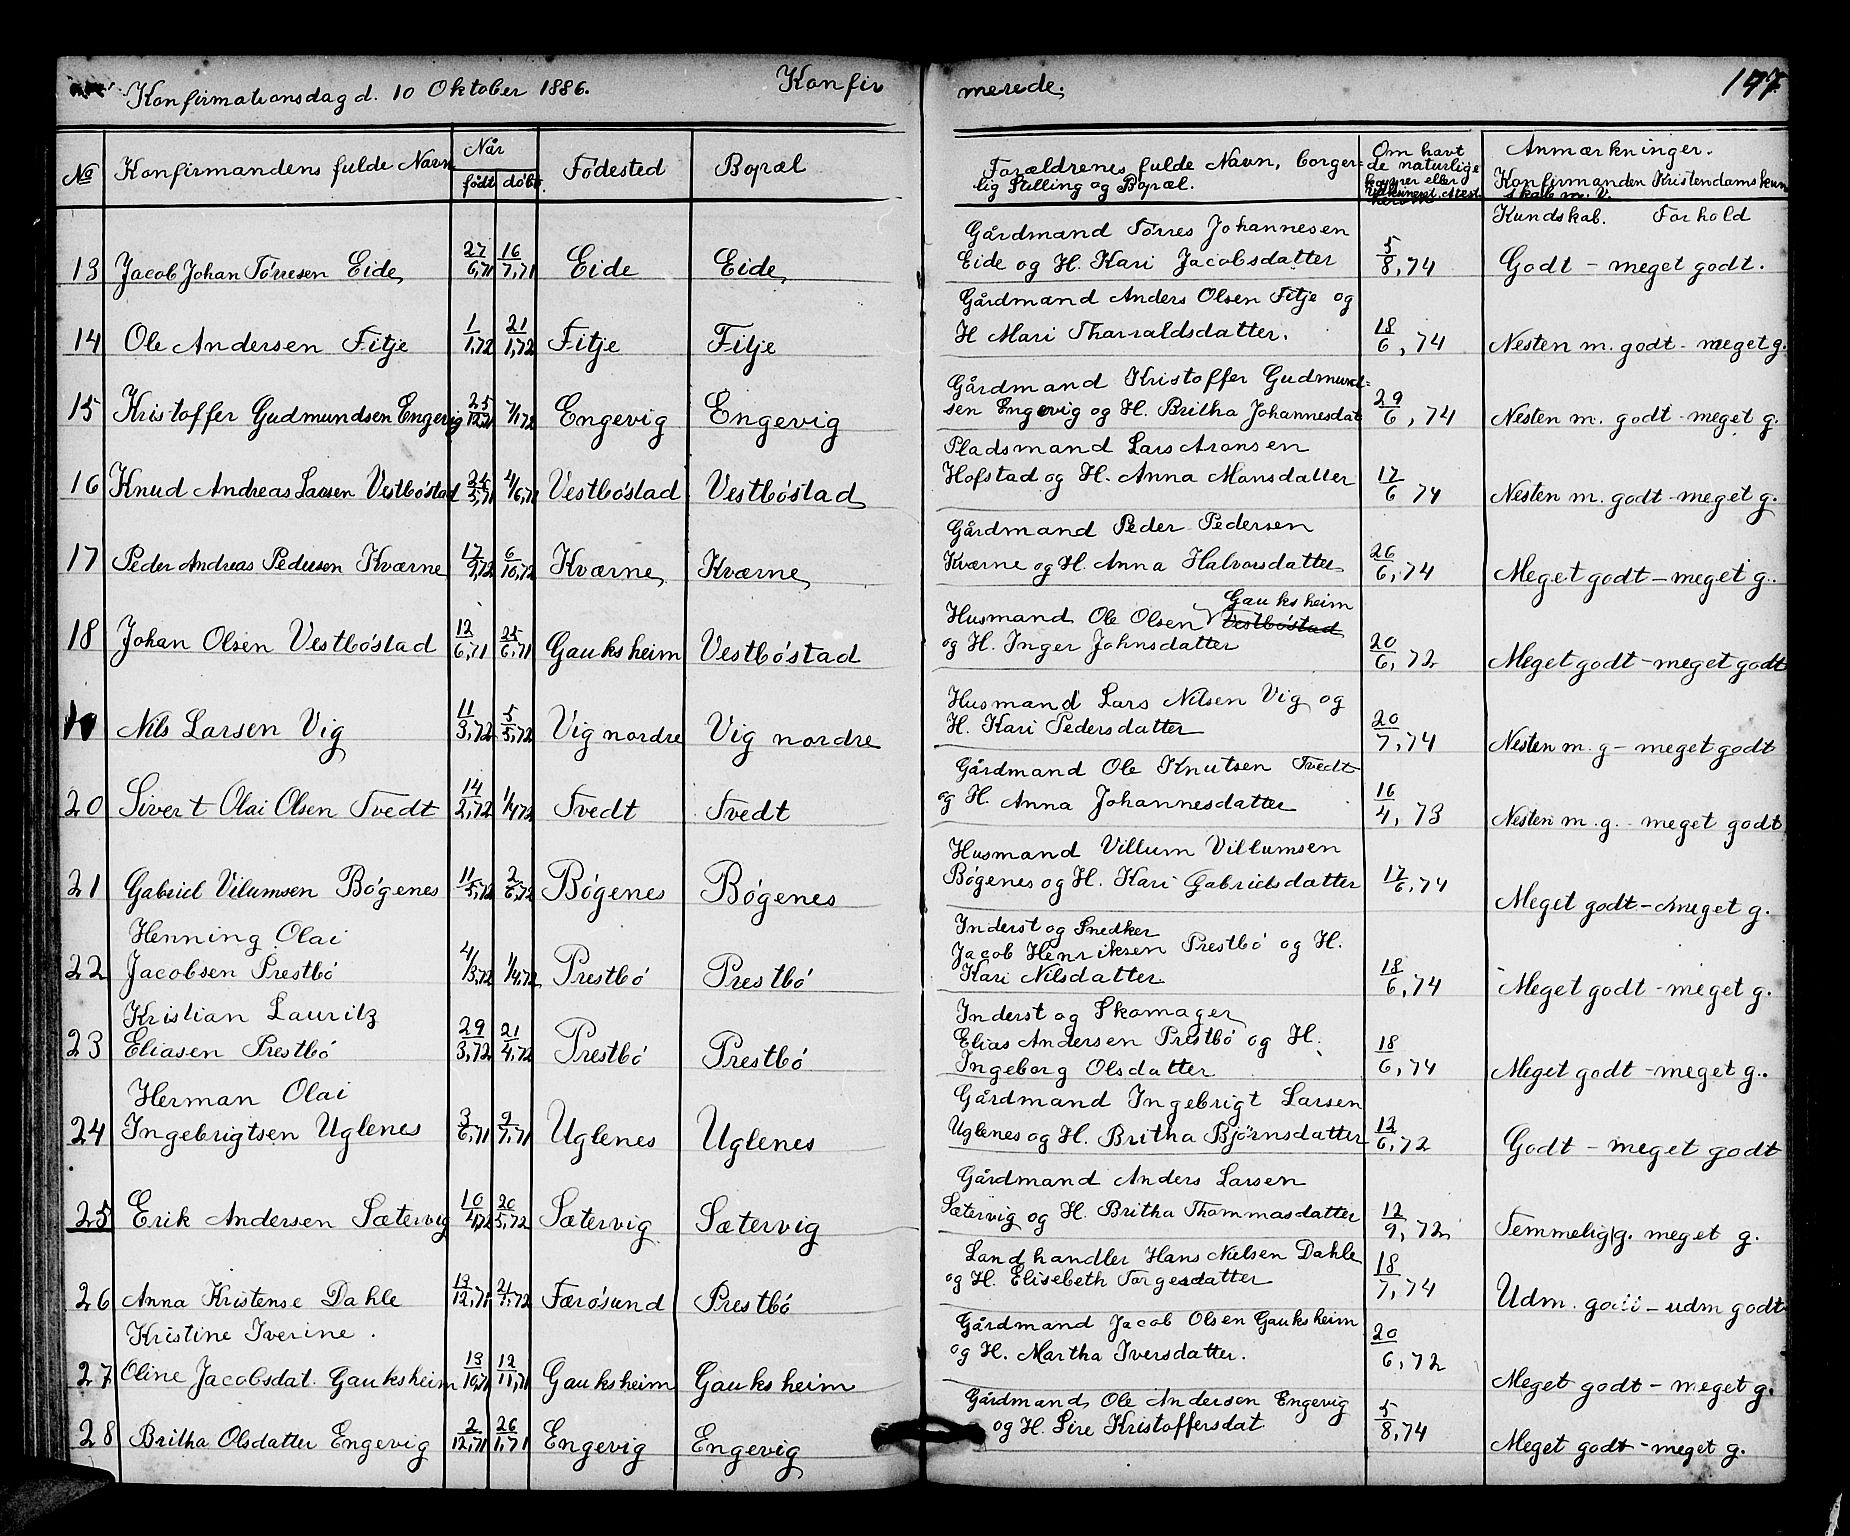 Konfirmationsdag d. 10 Oktober 1886. Konfir merede. 147
No Konfirmandens fulde Navn Når født døbt. Fødested Bopæl Forældrenes fulde Navn, borger= lig Stilling og Bopæl. Om havt de naturlige kopper eller Anmærkninger. Konfirmanden Kristendomskun skab m. V.
Kundskab. Forhold
Gårdmand Tørres Johannesen
13 Jacob Johan Tørresen Eide 27/6,71 16/7,71 Eide Eide Eide og H. Kari Jacobsdatter 5/8,74 Godt - meget godt.
Gårdmand Anders Olsen Fitje og
14 Ole Andersen Fitje 1/1,72 21/1,72 Fitje Fitje H Mari Tharraldsdatter. 18/6,74 Nesten m. godt - meget g.
Gårdmand Kristoffer Gudmund=
15 Kristoffer Gudmundsen Engevig 25/12,71 7/1 72 Engevig Engevig sen Engevig og H. Britha Johannesdat 29/6,74 Nesten m. godt - meget g.
Pladsmand Lars Aronsen
16 Knud Andreas Larsen Vestbøstad 25/5,71 4/6,71 Vestbøstad Vestbøstad Hofstad og H. Anna Monsdatter 17/6 74 Nesten m. godt - meget g.
Gårdmand Peder Pedersen
17 Peder Andreas Pedersen Kværne 17/9,72 6/10,72 Kværne Kværne Kværne og H. Anna Halvorsdatter 26/6,74 Meget godt - meget g.
Gauksheim
Husmand Ole Olsen Vestbøstad
18 Johan Olsen Vestbøstad 12/6,71 25/6,71 Gauksheim Vestbøstad og H. Inger Johnsdatter 20/6,72 Meget godt - meget godt
Husmand Lars Nilsen Vig og
19 Nils Larsen Vig 11/3,72 5/5,72 Vig nordre Vig nordre H. Kari Pedersdatter 20/7,74 Nesten m. g - meget godt
Gårdmand Ole Knutsen Tvedt
20 Sivert Olai Olsen Tvedt 14/2,72 1/4 72 Tvedt Tvedt og H. Anna Johannesdatter 16/4,73 Nesten m. g. - meget godt
Husmand Villum Villumsen
21 Gabriel Vilumsen Bøgenes 11/5,72 2/6,72 Bøgenes Bøgenes Bøgenes og H. Kari Gabrielsdatter 17/6,74 Meget godt - meget g.
Henning Olai Inderst og Snedker
22 Jacobsen Prestbø 4/3,72 1/4,72 Prestbø Prestbø Jacob Henriksen Prestbø og H.
Kari Nilsdatter 18/6,74 Meget godt - meget g.
Kristian Lauritz Inderst og Skomager
23 Eliasen Prestbø 29/3,72 21/4,72 Prestbø Prestbø Elias Andersen Prestbø og H.
Ingeborg Olsdatter 18/6,74 Meget godt - meget g..
Herman Olai Gårdmand Ingebrigt Larsen
24 Ingebrigtsen Uglenes 3/6,71 9/7,71 Uglenes Uglenes Uglenes og H. Britha Bjørnsdatter 12/6,72 Godt - meget godt
Gårdmand Anders Larsen
25 Erik Andersen Sætervig 10/4,72 20/5,72 Sætervig Sætervig Sætervig og H. Britha Thommasdatter 12/9,72 Temmelig g. meget g.
Landhandler Hans Nielsen Dahle
26 Anna Kristense Dahle 13/12,71 21/1,72 Færøsund Prestbø og H. Elisebeth Torgersdatter 18/7,74 Udm. godt - udm godt
Kristine Iverine. Gårdmand Jacob Olsen Gauksheim
27 Oline Jacobsdat. Gauksheim 13/10,71 12/11,71 Gauksheim Gauksheim og H. Martha Iversdatter. 20/6,72 Meget godt - meget g.
Gårdmand Ole Andersen Engevig
28 Britha Olsdatter Engevig 2/12,71 26/1,71 Engevig Engevig og H. Sire Kristoffersdat 5/8,74 Meget godt - meget g.